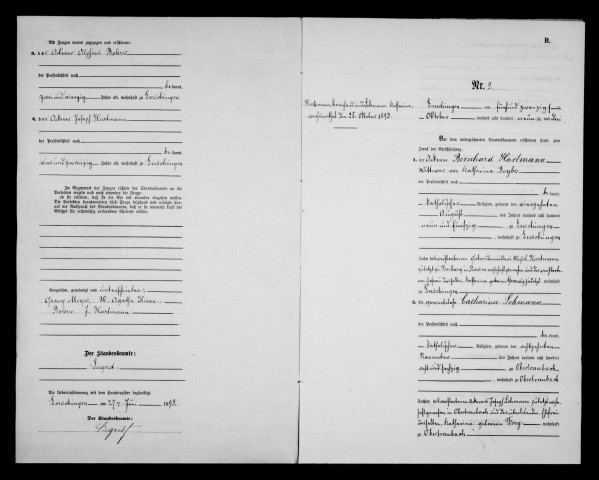 Als Zeugen waren zugezogen und erschienen:
a. der Ackerer Alphons Bohrer
der Persönlichkeit nach
be kannt,
zwei und vierzig Jahre alt, wohnhaft zu Enschingen
b. der Ackerer Josef Hartmann
der Persönlichkeit nach
be kannt,
Jahre alt, wohnhaft zu Enschingen
In Gegenwart der Zeugen richtete der Standesbeamte an die
Verlobten einzeln und nach einander die Frage:
ob sie erklären, daß sie die Ehe mit einander eingehen wollen.
Die Verlobten beantworteten diese Frage bejahend und erfolgte hier-
auf der Ausspruch des Standesbeamten, daß er sie nunmehr kraft des
Gesetzes für rechtmäßig verbundene Eheleute erkläre.
Vorgelesen, genehmigt und unterschrieben:
Georg Meyer, M. Agatha
Bohrer J. Hartmann
Der Standesbeamte:
Siegrist
Die Uebereinstimmung mit dem Hauptregister beglaubigt
Enschingen am 27 ten Juni 1893
Der Standesbeamte:
Siegrist
B.
Nr. 2.
Hartmann Bernhard und Lehmann Catharina
den 25. Oktober 1893.
Enschingen am fünfundzwanzigsten
Oktober tausend acht hundert neunzig und drei
Vor dem unterzeichneten Standesbeamten erschienen heute zum
Zweck der Eheschließung:
1. der Ackerer Bernhard Hartmann
Wittwer von Catharina
der Persönlichkeit nach
be kannt,
katholischer Religion, geboren den vierzehnten
August des Jahres tausend acht hundert
neun und fünfzig zu Enschingen
, wohnhaft zu Enschingen
Sohn des verstorbenen Michel Hartmann
zuletzt zu
wohnhaft
zu Enschingen
2. die gewerblose Catharina Lehmann
der Persönlichkeit nach
be kannt,
katholischer Religion, geboren den achtzehnten
November des Jahres tausend acht hundert
acht und sechzig zu Obertraubach
, wohnhaft zu Obertraubach
Tochter des verstorbenen Ackerers Josef Lehmann zuletzt wohn-
haft gewesen in Obertraubach und der überlebenden Ehefrau
desselben, Katharina geborene wohnhaft
zu Obertraubach